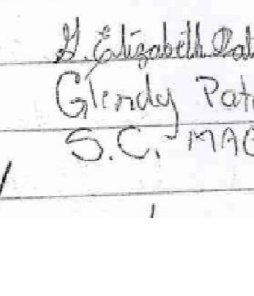 G. Elizabeth Pat
Glendy Pat
S.C. MAG